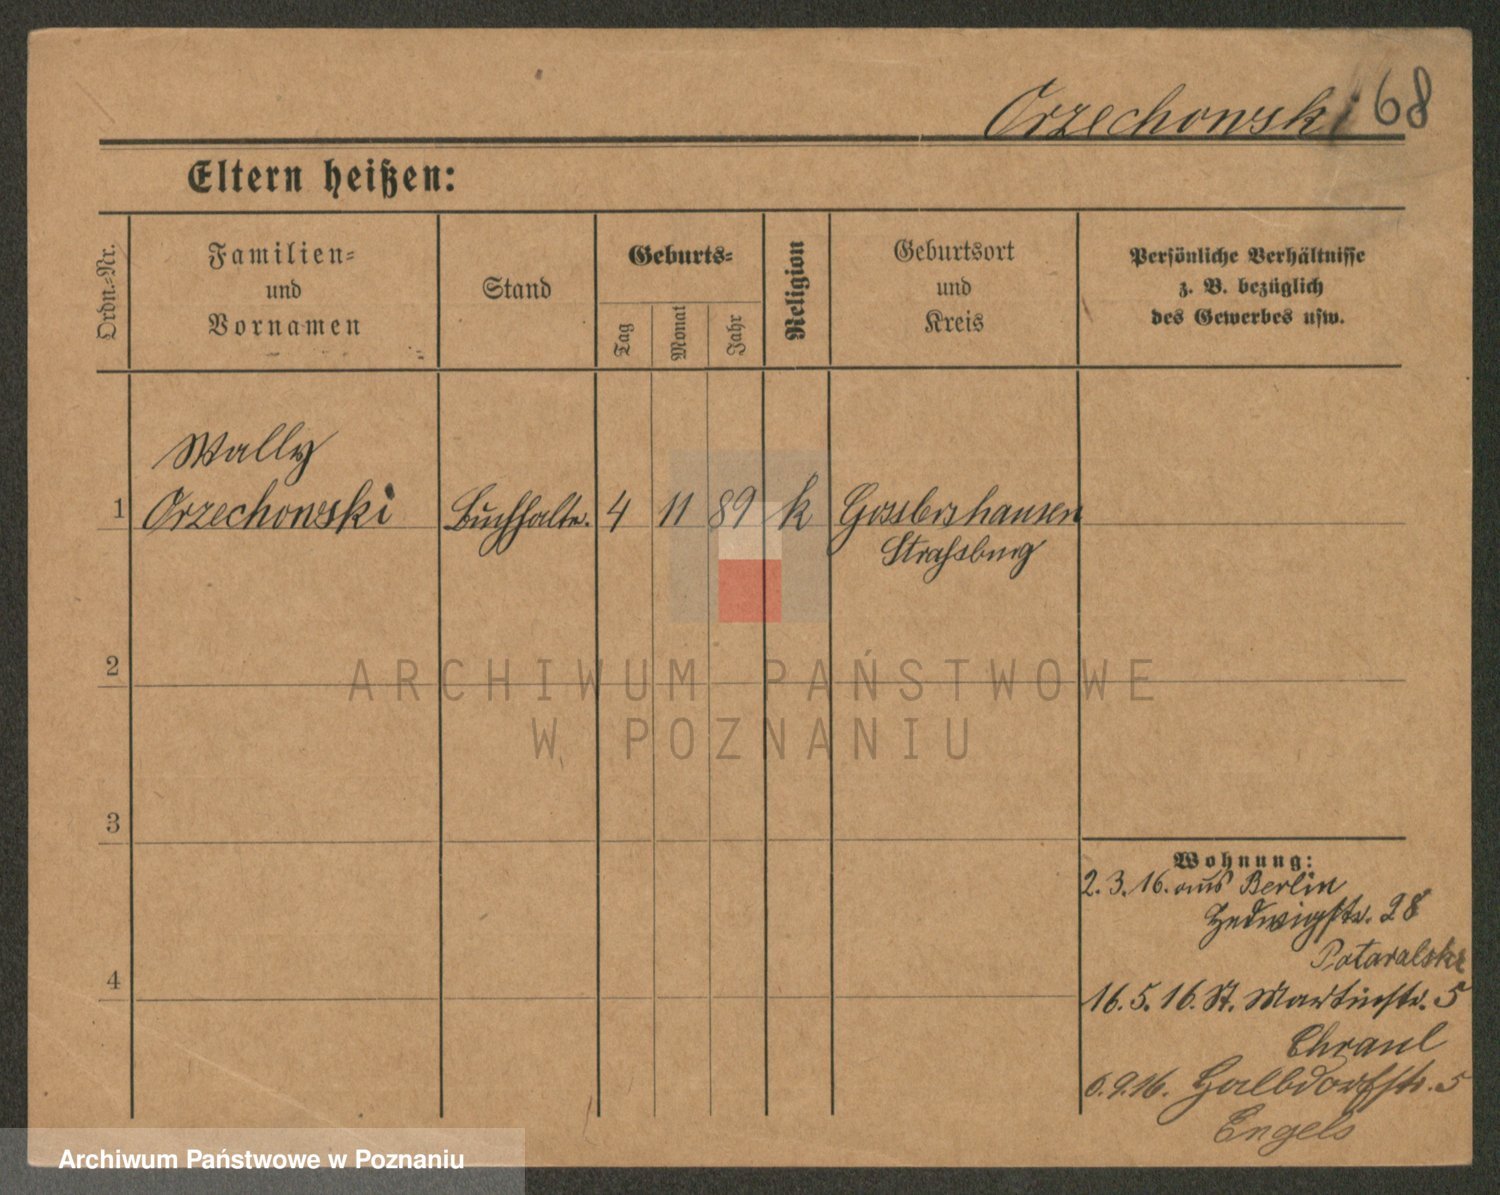 Orzechowski 68
Eltern heißen:
Ordn.-Nr.
Familien-
und
Vornamen
Stand
Geburts-
Tag
Monat
Jahr
Religion
Geburtsort
und
Kreis
Persönliche Verhältnisse
z. B. bezüglich
des Gewerbes usw.
Wally
1 Orzechowski Buchhaltr. 4 11 89 k Gosslershausen
Strassburg
2
ARCHIWUM PAŃSTWOWE
W POZNANIU
3
Wohnung:
2.3.16. aus Berlin
Hedwigstr. 28
4
16.5.16. St. Martinstr. 5
6.9.16. Halbdorfstr. 5
Engels
Archiwum Państwowe w Poznaniu